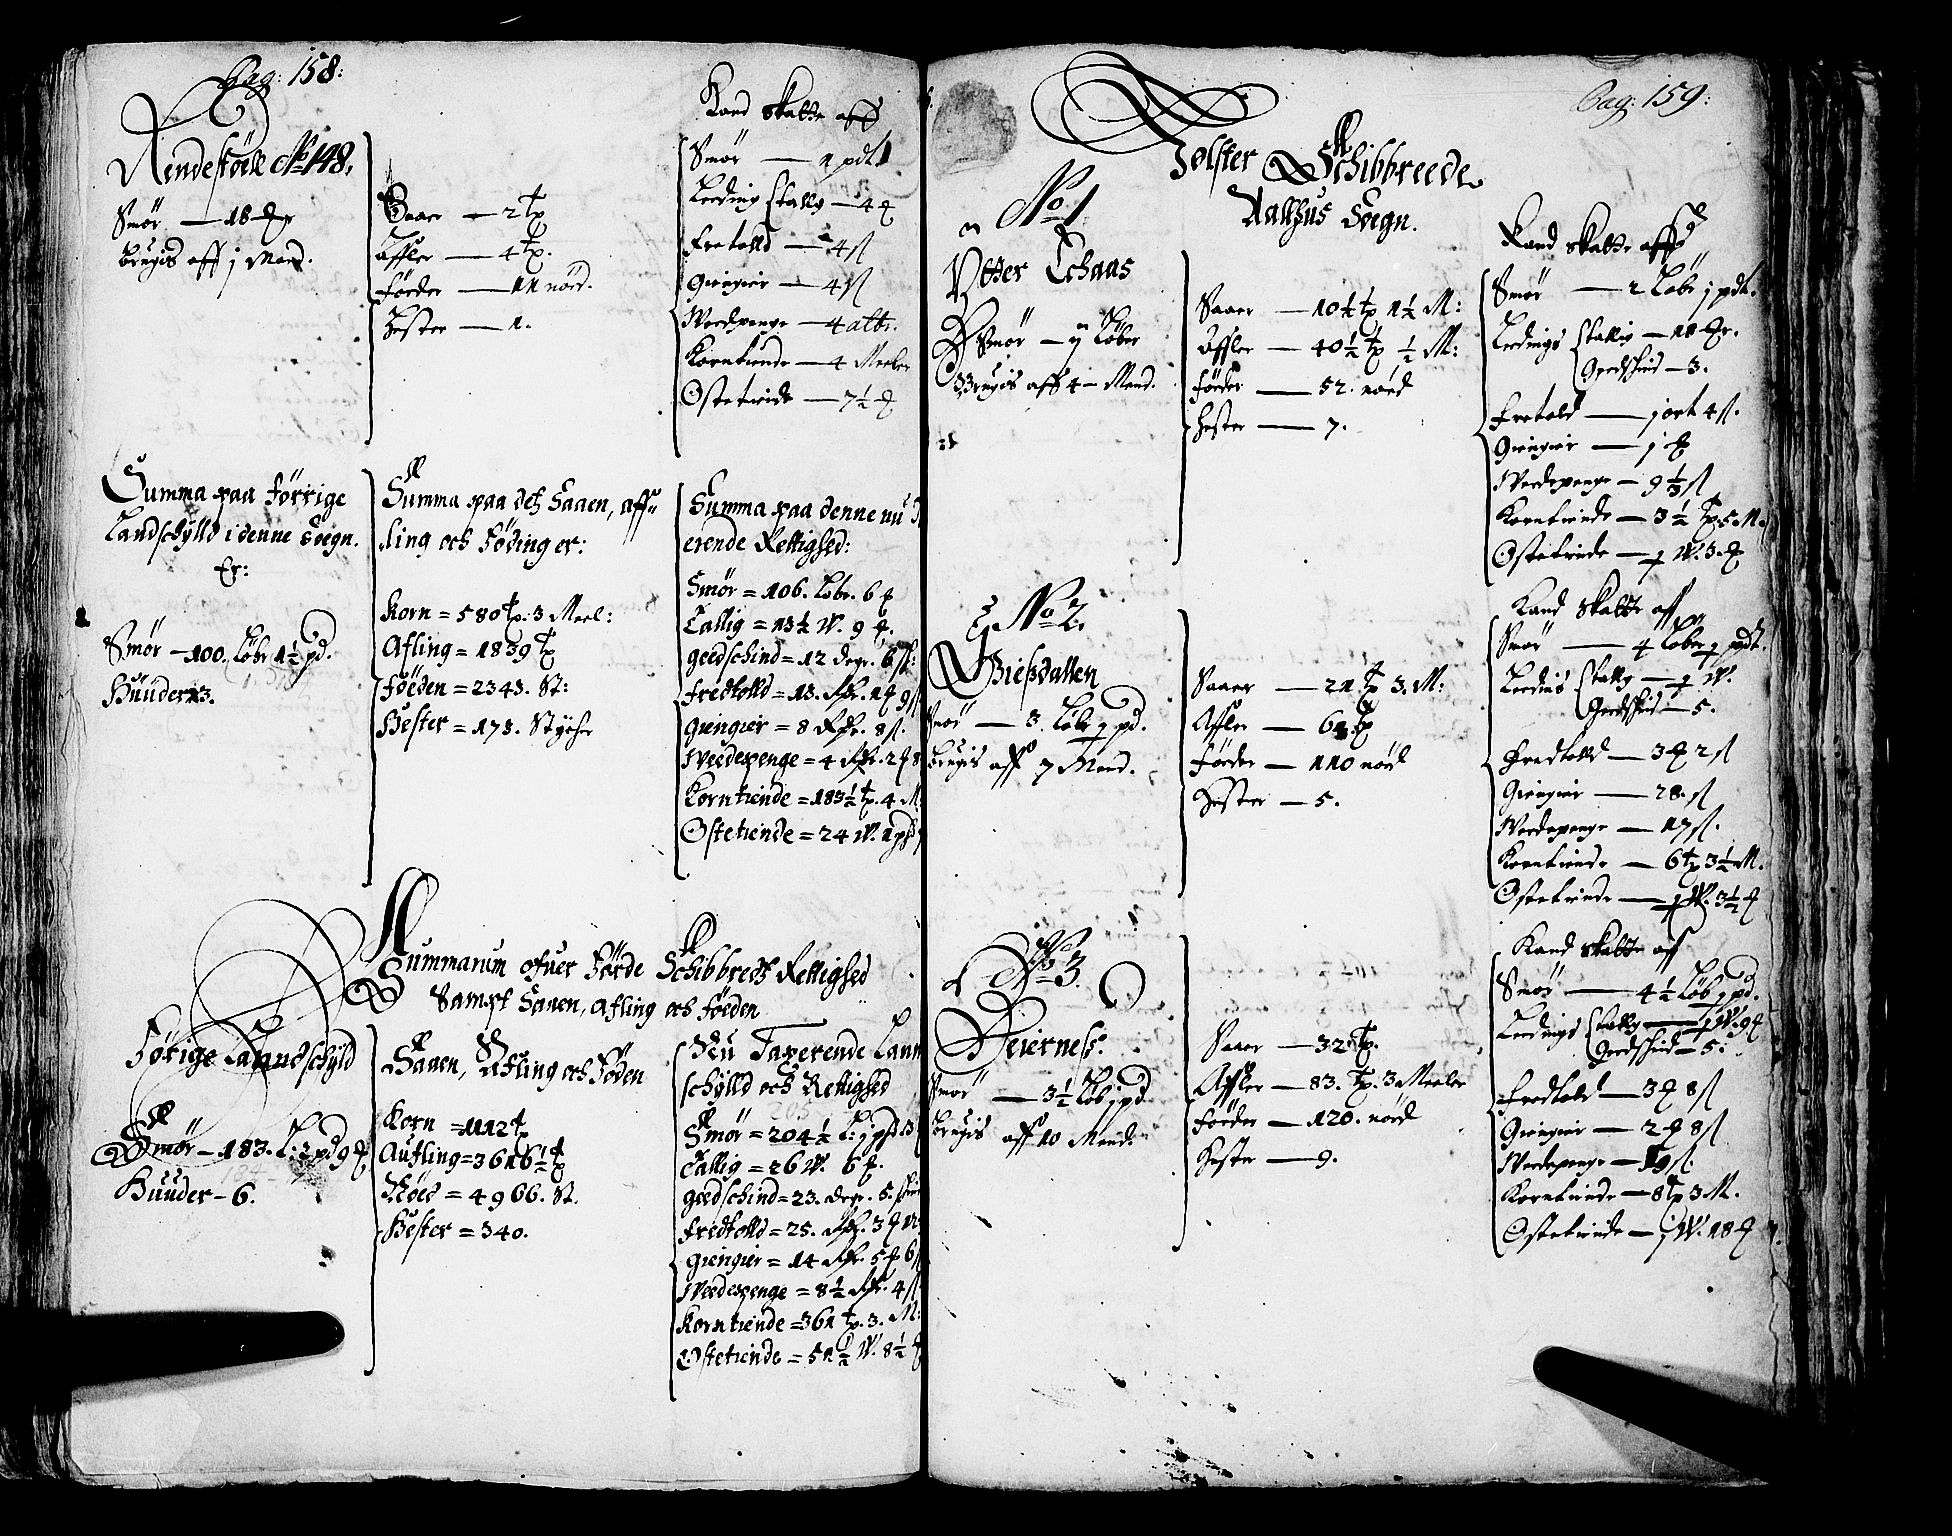 Pag: 158:
Rendestöell No 148,
Smör — 18 
Brugis aff j Mand.
Saaer — 2 tp
Affler — 4 tp.
Föeder — 11 nöed.
Hester — 1.
Kand skatte aff
Smör — 1 pdt
Leding tallig — 4
Fretolld — 4 sl
Giengier — 4 sl
Weedpenge — 4 alb.
Korntiende — 4 Meeler
Ostetiende — 7½
Summa paa förrige
Landschylld i denne Soegn.
Er:
Smör — 100. Löbr 1½ pd.
Huuder 3.
Summa paa des Saaen, aff-
ling och Föding er:
Korn = 580 tp: 3 Meel:
Afling = 1839 tp
Föeden = 2343. St:
Hester = 173. Stycher
Summa paa denne nu
erende Rettighed:
Smör = 106. Löbr. 6
Tallig = 13½ W. 9
geedschind = 12 degr. 6 sk:
Fredtolld = 13. Rdr. 1 9
giengier = 8 Rdr. 8 sl.
Weedepenge = 4 Rdr. 2 8
Korntiende = 183½ tp. 4 M
Ostetiende = 24 W. 1 pd
Summarum ofuer Förde Schibbredes Rettighed
Sampt Saaen, Afling och Föeden
Förige Landschyld
Smör — 183. L: 2 pd 9
Huuder — 6.
Saaen, Afling och Föden
Korn = 1112 tp
Aufling = 3616½ tp
Nöed = 4966. St.
Hester = 340.
Nu Taxerende Lann
schylld och Rettighed
Smör = 204½ L: j pd. 3
Tallig = 26 W. 6
geedschind = 23. degr. 5. skin
Fredtolld = 25. Rdr. 3 12
giengier = 14 Rdr. 5 6
Weedepenge = 8½ Rdr. 4 sl
Korntiende = 361 tp. 3. M:
Ostetiende = 51½ W. 8½
Pag: 159:
Jölster Schibbreede
Aalhus Soegn.
No 1.
Ytter Echaas
Smör — Löber
Brugis aff 4 — Mend.
Saaer — 10½ tp 1½ M:
Affler — 40½ tp ½ M:
Föeder — 52. nöed
Hester — 7.
Kand skatte aff
Smör — 2 Löbr j pdt.
Ledings tallig — 18
Geedskind — 3.
Fretold — j ort 4 sl.
Giengier — j
Weedepenge — 9⅓ sl
Korntiende — 3½ Tp 5 M.
Ostetiende — 1 W. 3.
No 2.
Giesdallen
Smör — 3 Löbr 1 pd.
Brugis aff 7 Mend.
Saaer — 21 tp 3. M:
Affler — 61 tp
Föeder — 110 nöed
Hester — 5.
Kand skatte aff
Smör — 4 Löber 1 pdt.
Ledings tallig — 1 W.
Geedskind — 5.
Fredtolld — 3 2 sl
Giengier — 28. sl
Weedepenge — 17 sl.
Korntiende — 6 tp 3½ M.
Ostetiende — 1 W. 3½
No 3.
Deiernes.
Smör — 3½ Löb j pd
Brugis aff 10 Mend
Saaer — 32 tp.
Affler — 83. tp. 3 Meeler
Föeder — 120. nöed
Hester — 9.
Kand skatte aff
Smör — 4½ Löb j pd.
Ledings tallig — 1 W. 9
Geedskind — 5.
Fredtold — 3 8 sl
Giengier — 2 8 sl
Weedepenge — 19 sl.
Korntiende — 8 tp 3 M.
Ostetiende — j W. 18